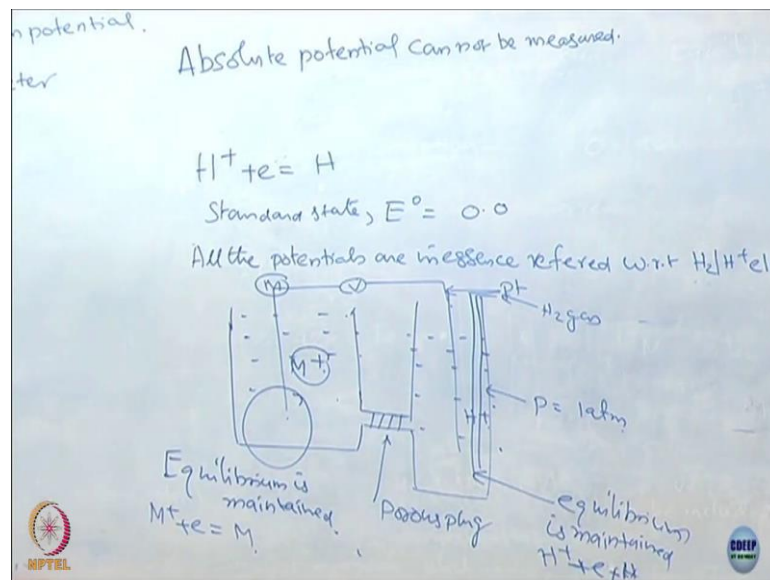 n potential.
Absolute potential cannot be measured.
ter
H+ +e= H
Standard state, E°= 0.0
All the potentials are in essence refered w.r.t H2/H+ el
M
V
Pt
H2 gas
M+
P= 1atm
H+
Equilibrium is
maintained.
M+ +e = M
Porous plug
equilibrium
is maintained
H+ +e = H
NPTEL
CDEEP
IIT BOMBAY